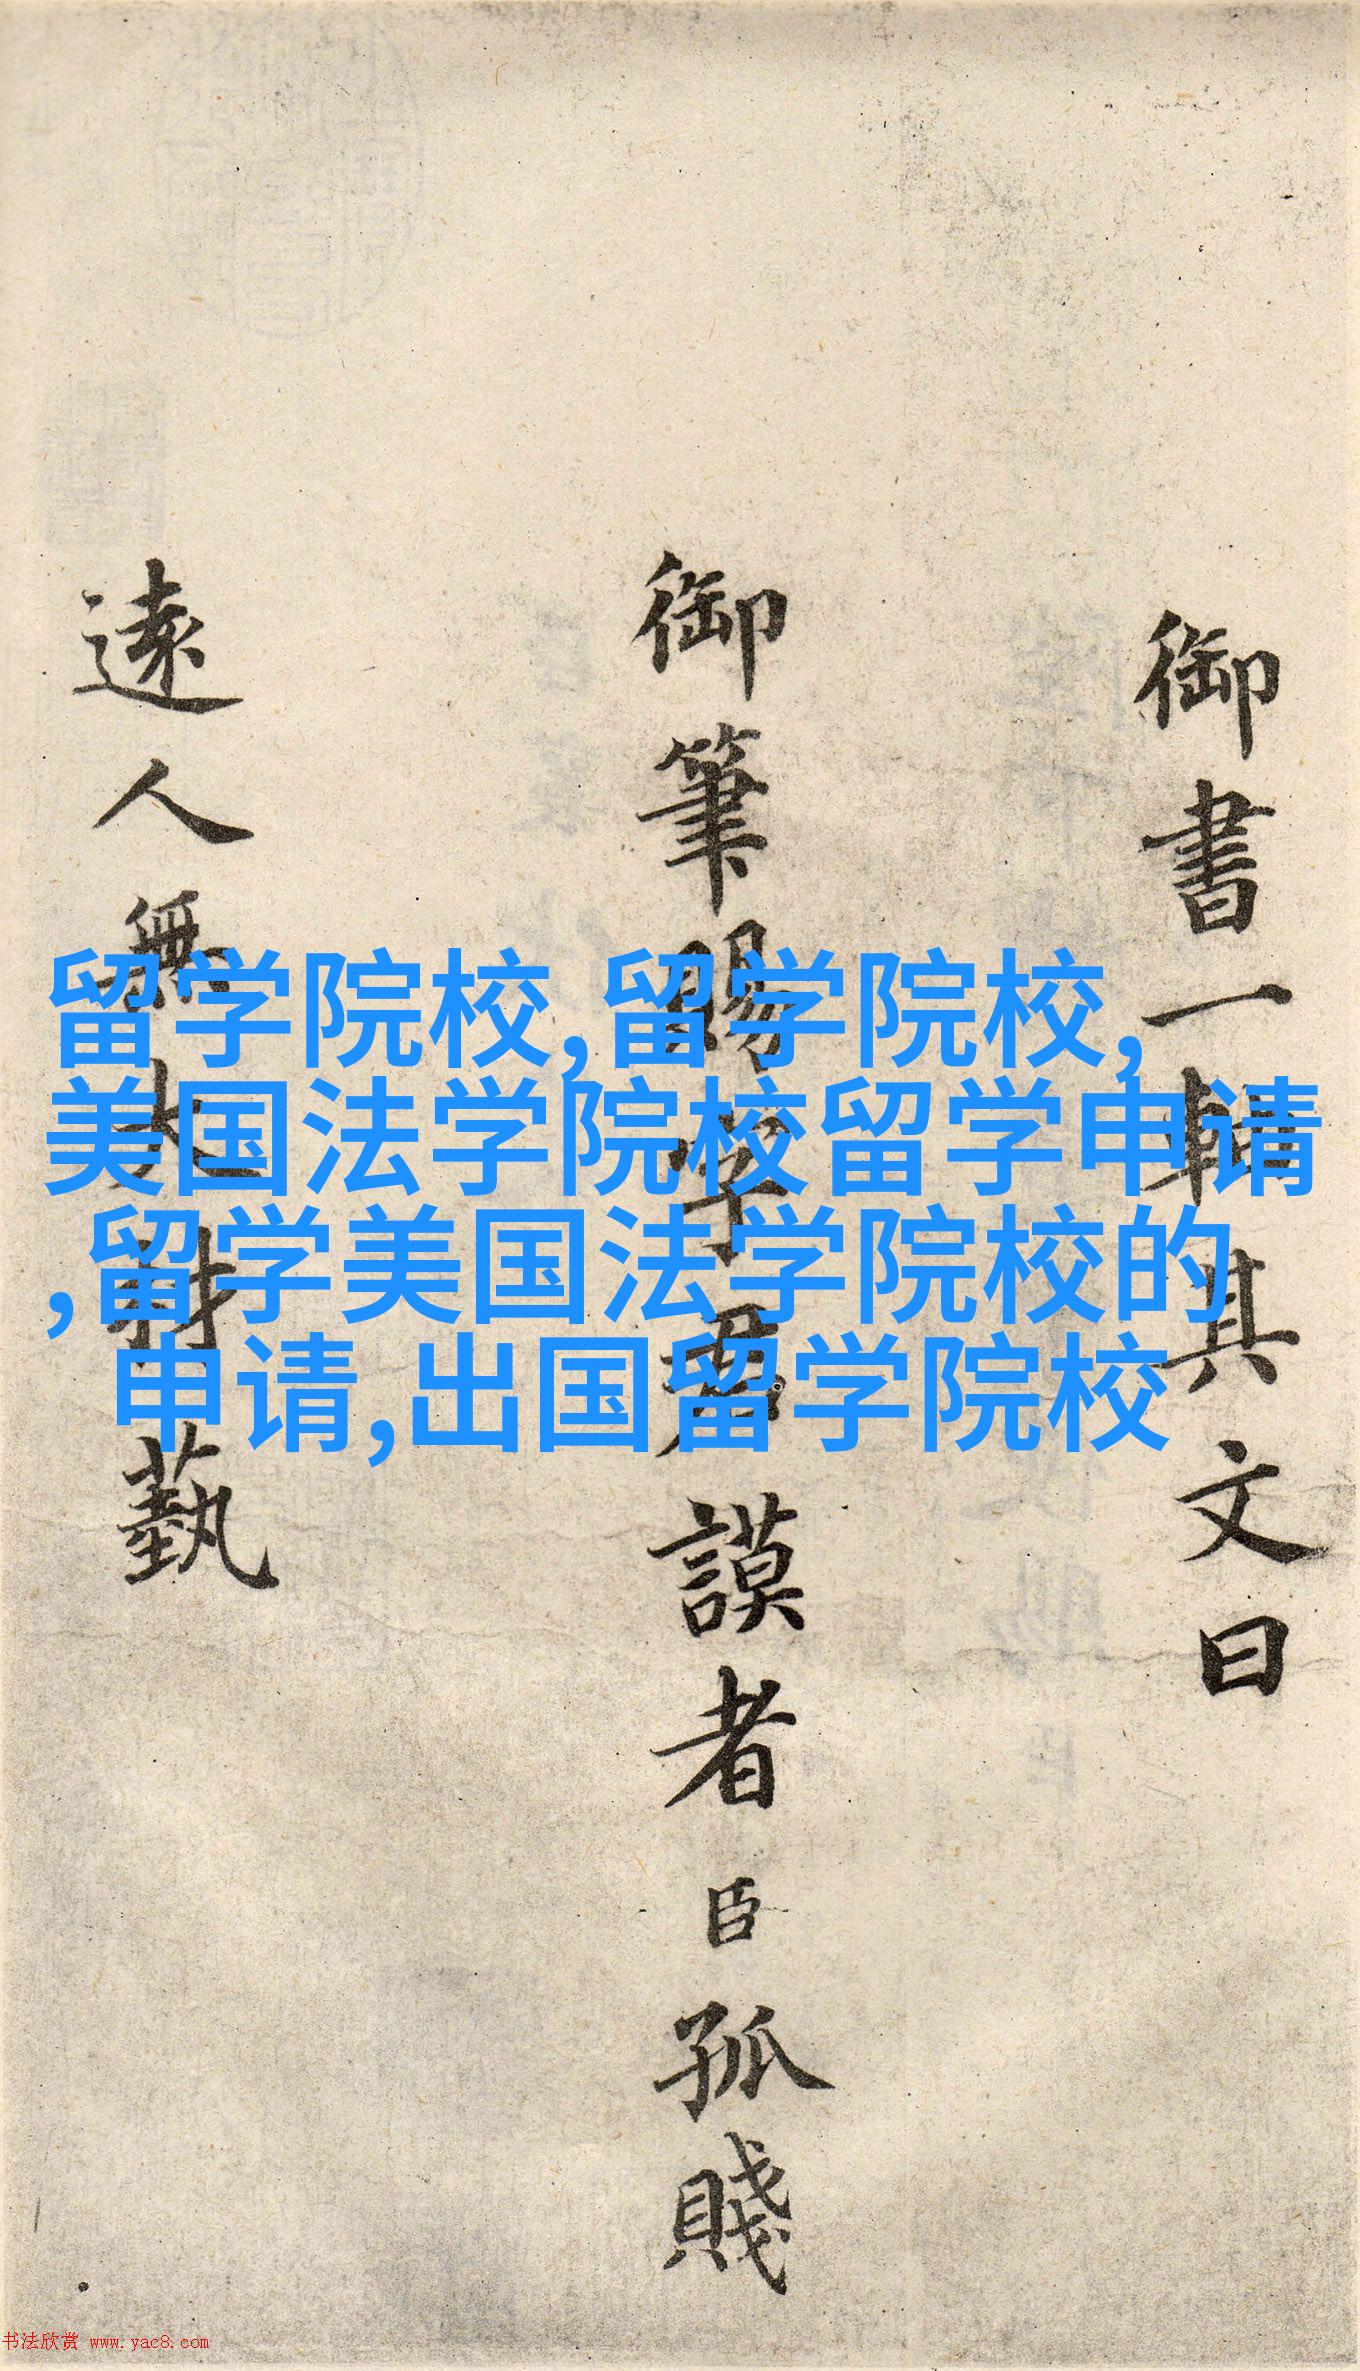 御書一軸其文曰
御筆賜字君謨者臣孤賤
遠人無大材藝
留学院校,留学院校,
美国法学院校留学申请
,留学美国法学院校的
申请,出国留学院校
书法欣赏 www.yac8.com